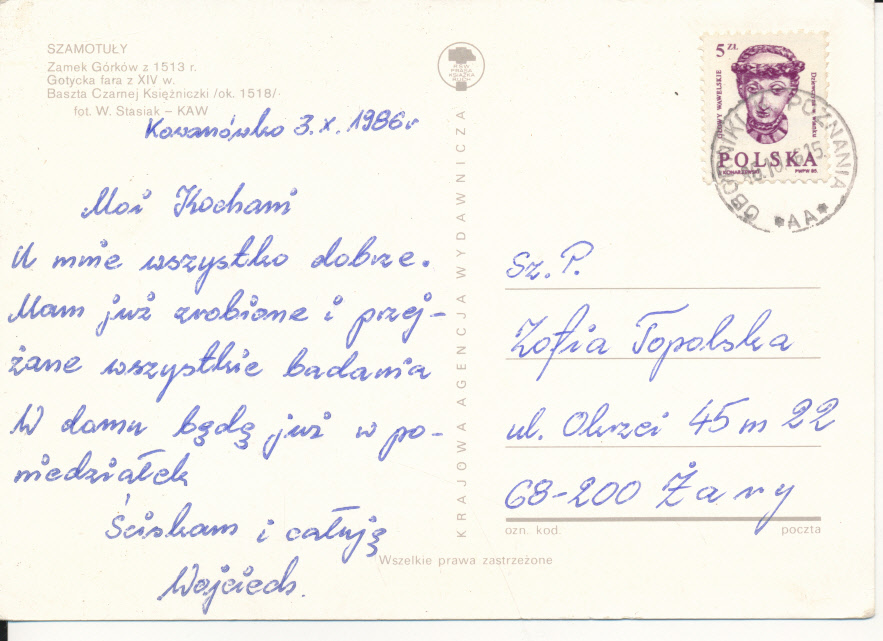 SZAMOTUŁY
Zamek Górków z 1513 r.
Gotycka fara z XIV w.
Baszta Czarnej Księżniczki /ok. 1518/
fot. W. Stasiak – KAW
Kowanówko 3.X.1986r
Moi Kochani
U mnie wszystko dobrze.
Mam już zrobione i przej-
żane wszystkie badania
W domu będę już w po-
niedziałek
Ściskam i całuję
Wojciech.
KRAJOWA AGENCJA WYDAWNICZA
RSW
PRASA
KSIĄŻKA
RUCH
5 ZŁ
GŁOWY WAWELSKIE
Dziewczyna w wianku
POLSKA
PWPW 85.
OBORNIKI K. POZNANIA
*AA*
Sz. P.
Zofia Topolska
ul. Okrzei 45 m 22
68-200 Żary
ozn. kod. poczta
Wszelkie prawa zastrzeżone